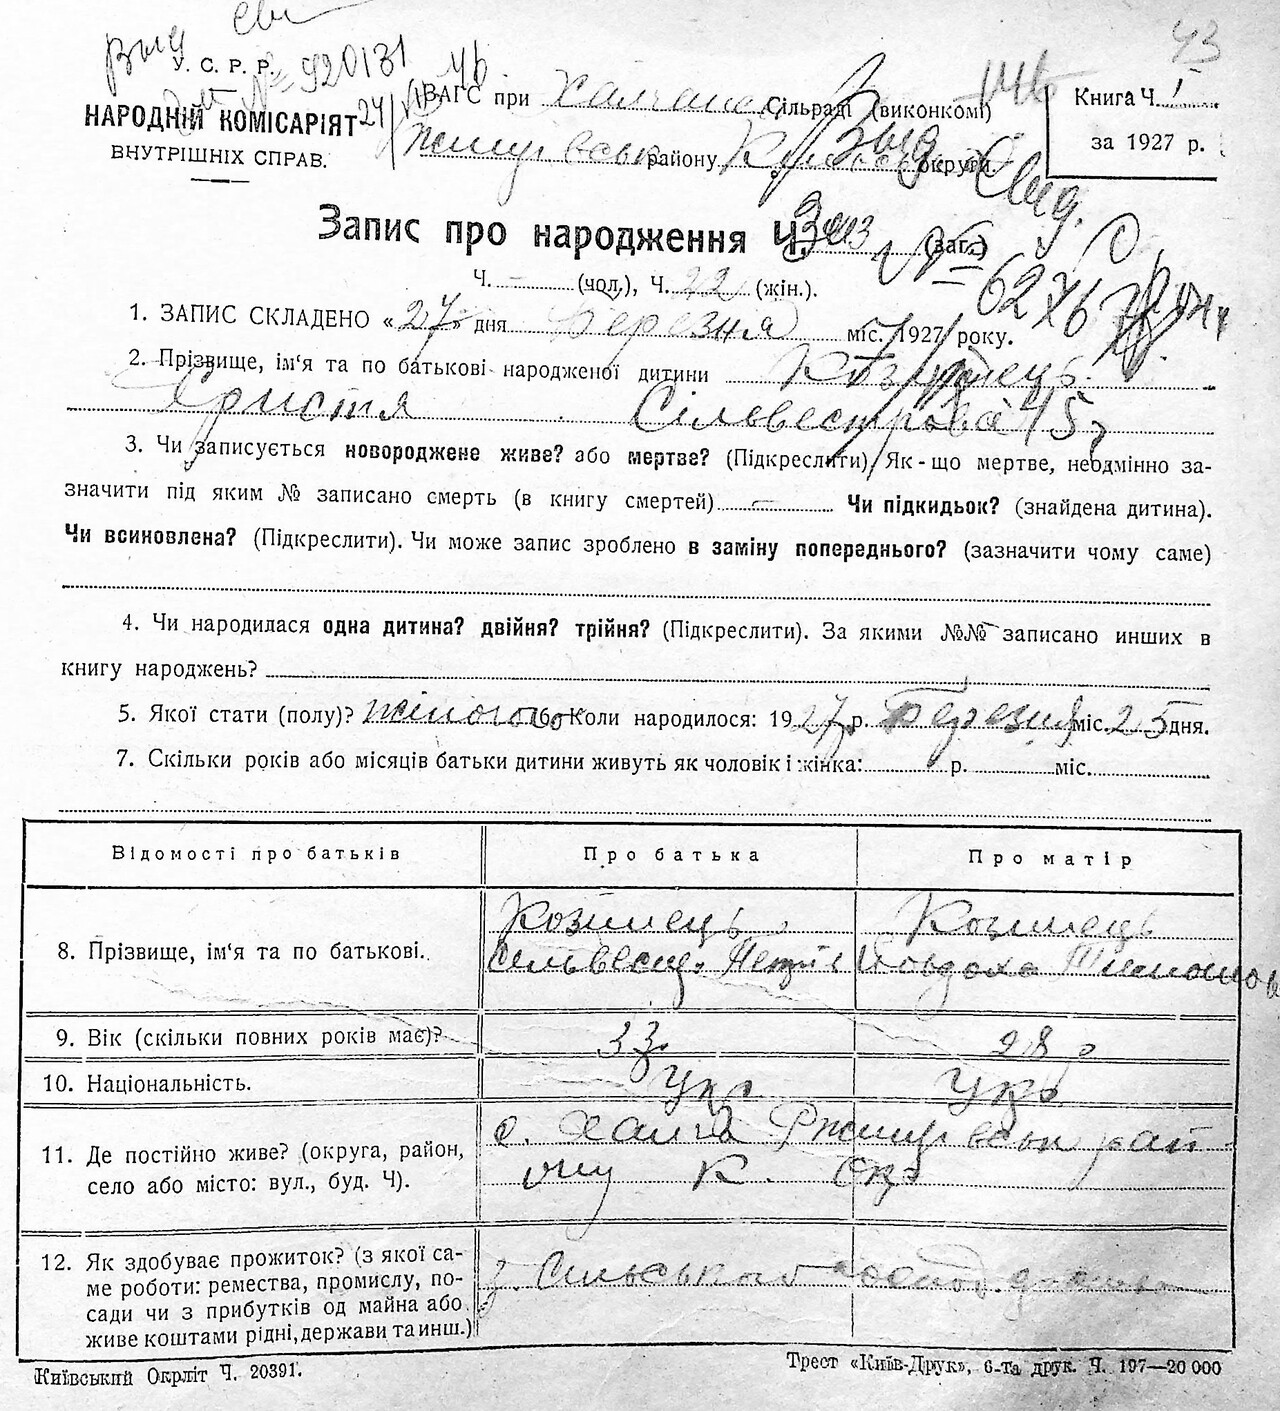 43
У. С. Р. Р.
№ 920131
НАРОДНІЙ КОМІСАРІЯТ
ВНУТРІШНІХ СПРАВ.
ЗАГС при Халчанс Сільраді (виконкомі)
району округи.
Книга Ч. I
за 1927 р.
Запис про народження Ч. (заг.)
Ч. - (чол.), Ч. 22 (жін.).
№ 62476
1. ЗАПИС СКЛАДЕНО «27» дня Березня міс. 1927 року.
2. Прізвище, ім‘я та по батькові народженої дитини
Христя Сільвестрова
3. Чи записується новороджене живе? або мертве? (Підкреслити). Як-що мертве, неодмінно за-
значити під яким № записано смерть (в книгу смертей) — Чи підкидьок? (знайдена дитина).
Чи всиновлена? (Підкреслити). Чи може запис зроблено в заміну попереднього? (зазначити чому саме)
4. Чи народилася одна дитина? двійня? трійня? (Підкреслити). За якими №№ записано инших в
книгу народжень?
5. Якої стати (полу)? жіночого 6. Коли народилося: 1927 р. Березня міс. 25 дня.
7. Скільки років або місяців батьки дитини живуть як чоловік і жінка: р. міс.
Відомості про батьків Про батька Про матір
8. Прізвище, ім‘я та по батькові. Козинець Козинець
Сільвест. Петрів Йовдоха Тимошов
9. Вік (скільки повних років має)? 33 28
10. Національність. Укр. Укр.
11. Де постійно живе? (округа, район,
село або місто: вул., буд. Ч).
с. Халча Ржищівськ рай-
ону К. Окр
12. Як здобуває прожиток? (з якої са-
ме роботи: ремества, промислу, по-
сади чи з прибутків од майна або
живе коштами рідні, держави та инш.)
з сільського господ.
Київський Окрліт Ч. 20391.
Трест «Київ-Друк», 6-та друк. Ч. 197—20 000